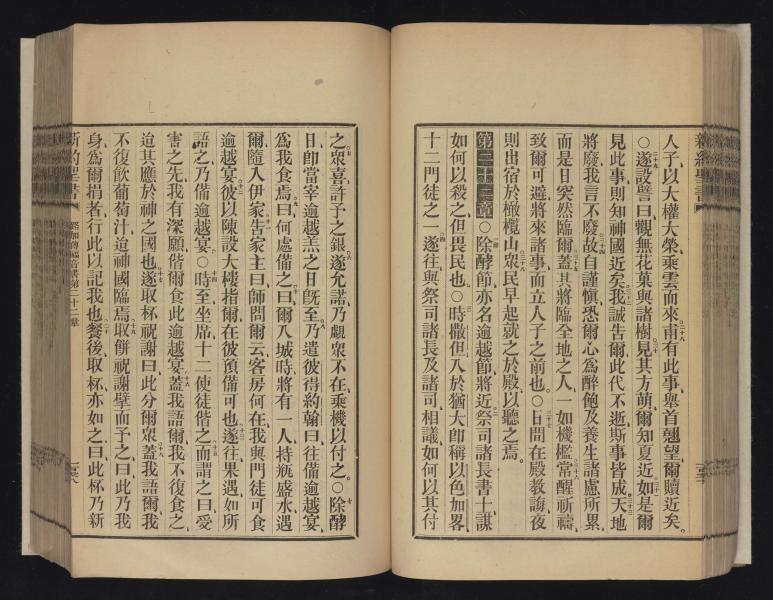 人子以大權大榮乘雲而來甫有此事舉首翹望爾贖近矣
○遂設譬曰觀無花菓與諸樹見其方萌爾知夏近如是爾
見此事則知神國近矣我誠告爾此代不逝斯事皆成天地
將廢我言不廢故自謹愼恐爾心爲醉飽及養生諸慮所累
而是日突然臨爾蓋其將臨全地之人一如機檻常醒祈禱
致爾可避將來諸事而立人子之前也○日間在殿教誨夜
則出宿於橄欖山衆民早起就之於殿以聽之焉
第二十二章○除酵節亦名逾越節將近祭司諸長書士謀
如何以殺之但畏民也○時撒但入於猶大卽稱以色加畧
十二門徒之一遂往與祭司諸長及諸司相議如何以其付
之衆喜許予之銀遂允諾乃覘衆不在乘機以付之○除酵
日卽當宰逾越羔之日旣至乃遣彼得約翰曰往備逾越宴
爲我食焉曰何處備之曰爾入城時將有一人持瓶盛水遇
爾隨入伊家告家主曰師問爾云客房何在我與門徒可食
逾越宴彼以陳設大樓指爾在彼預備可也遂往果遇如所
語之乃備逾越宴○時至坐席十二使徒偕之而謂之曰愛
害之先我有深願偕爾食此逾越宴蓋我語爾我不復食之
迨其應於神之國也遂取杯祝謝曰此分爾衆蓋我語爾我
不復飲葡萄汁迨神國臨焉取餅祝謝擘而予之曰此乃我
身爲爾捐者行此以記我也餐後取杯亦如之曰此杯乃新
新約聖書 路加傳福音書第二十二章